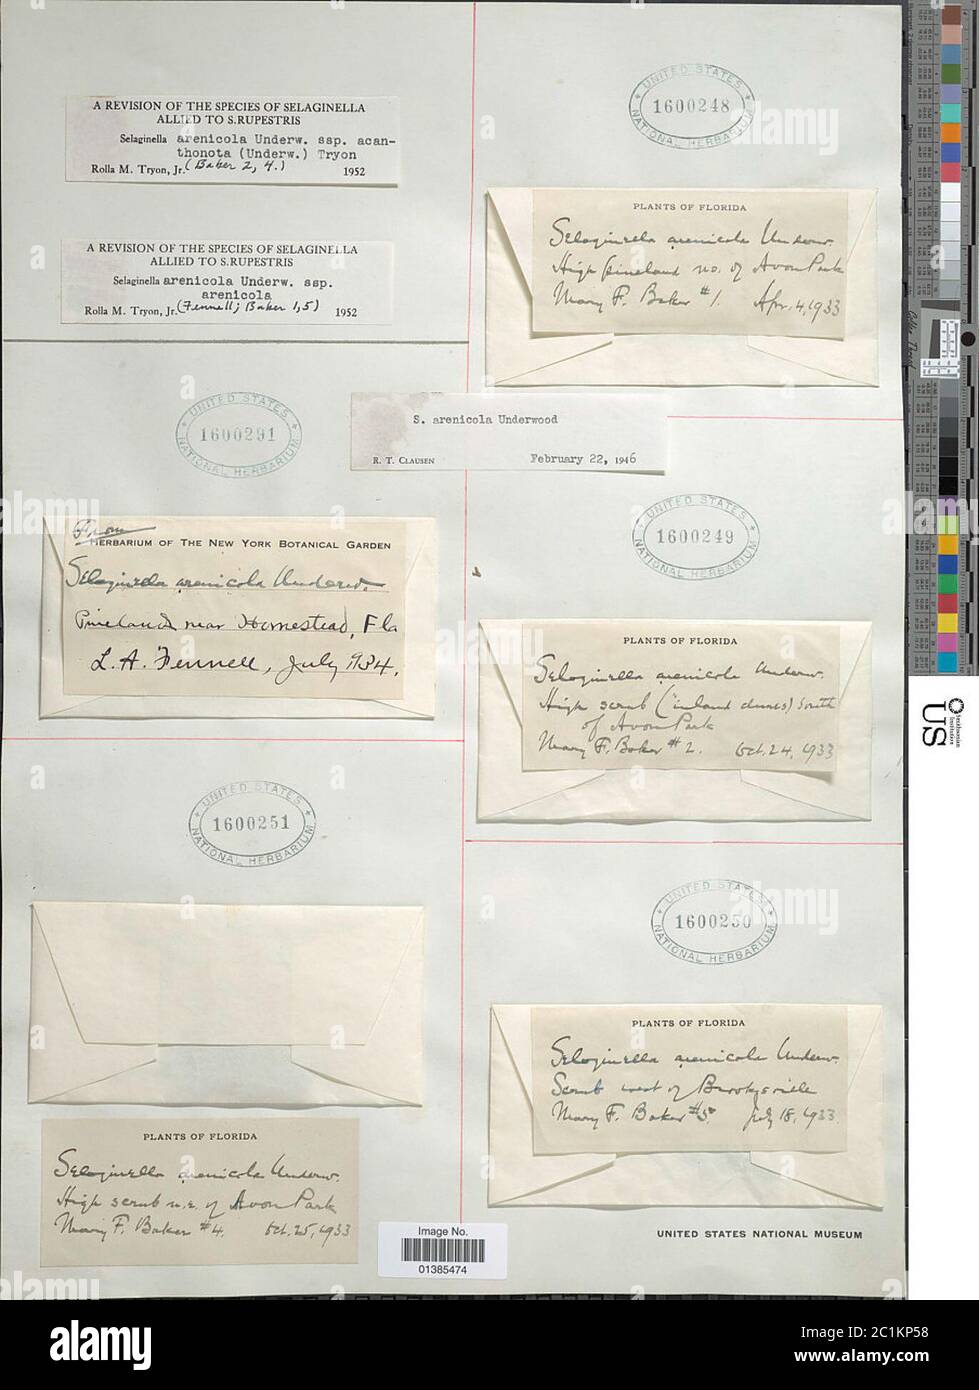 A REVISION OF THE SPECIES OF SELAGINELLA
ALLIED TO S.RUPESTRIS
Selaginella arenicola Underw. ssp. acan-
thonota (Underw.) Tryon
Rolla M. Tryon, Jr. (Baker 2, 4.) 1952
A REVISION OF THE SPECIES OF SELAGINELLA
ALLIED TO S.RUPESTRIS
Selaginella arenicola Underw. ssp.
arenicola
Rolla M. Tryon, Jr. (Fennell; Baker 1,5) 1952
UNITED STATES
1600248
NATIONAL HERBARIUM
PLANTS OF FLORIDA
Selaginella arenicola Underw.
High pineland no. of Avon Park
Mary F. Baker #1. Apr. 4, 1933
S. arenicola Underwood
R. T. CLAUSEN February 22, 1946
UNITED STATES
1600291
NATIONAL HERBARIUM
From
HERBARIUM OF THE NEW YORK BOTANICAL GARDEN
Selaginella arenicola Underw.
Pinelands near Homestead, Fla
L. A. Fennell, July 1934.
UNITED STATES
1600249
NATIONAL HERBARIUM
PLANTS OF FLORIDA
Selaginella arenicola Underw.
High scrub ("inland dunes) South
of Avon Park
Mary F. Baker #2. Oct. 24, 1933
UNITED STATES
1600251
NATIONAL HERBARIUM
PLANTS OF FLORIDA
Selaginella arenicola Underw.
High scrub n.e. of Avon Park
Mary F. Baker #4. Oct. 25, 1933
UNITED STATES
1600250
NATIONAL HERBARIUM
PLANTS OF FLORIDA
Selaginella arenicola Underw.
Scrub west of Brooksville
Mary F. Baker #5. July 18, 1933
Image No.
01385474
UNITED STATES NATIONAL MUSEUM
Smithsonian
Institution
US
alamy
Image ID: 2C1KP58
www.alamy.com